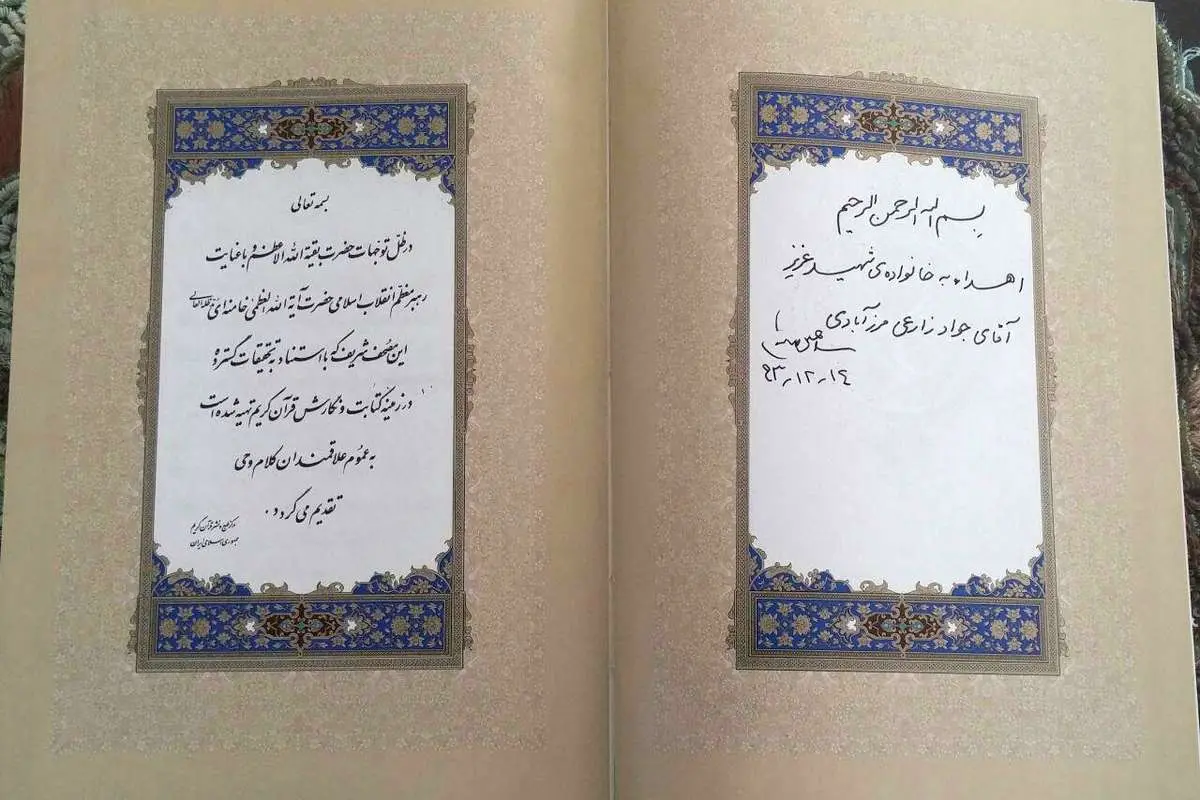 بسم الله الرحمن الرحیم
اهداء به خانواده‌ی شهید عزیز
آقای جواد زارعی مرزآبادی
۹۳٫۱۲٫۱۴
بسمه تعالی
در ظلّ توجهات حضرت بقیة الله الاعظم و با عنایت
رهبر معظّم انقلاب اسلامی حضرت آیة الله العظمی خامنه‌ای مدظله العالی
این مصحف شریف که با استناد به تحقیقات گسترده
در زمینه کتابت و نگارش قرآن کریم تهیه شده است
به عموم علاقمندان کلام وحی
تقدیم می گردد.
مرکز طبع و نشر قرآن کریم
جمهوری اسلامی ایران